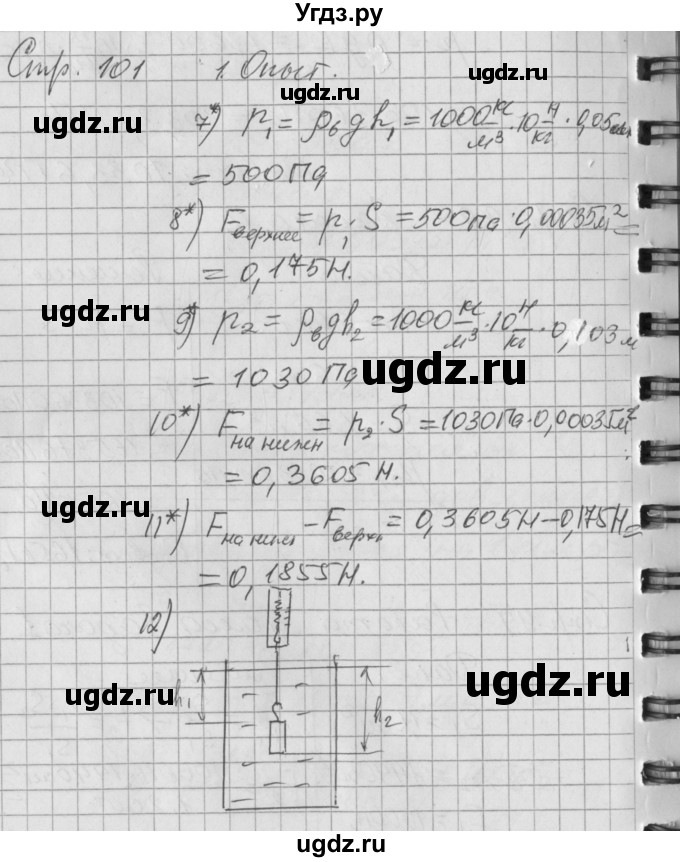 Угдз.ру
Стр. 101 1. Опыт.
ugdz.ru
ugdz.ru
ugdz.ru
7*) p₁ = ρвgh₁ = 1000 кг/м³ · 10 Н/кг · 0,05 м
= 500 Па
8*) Fверхнее = p₁ · S = 500 Па · 0,00035 м² =
= 0,175 Н.
ugdz.ru
ugdz.ru
9*) p₂ = ρвgh₂ = 1000 кг/м³ · 10 Н/кг · 0,103 м
ugdz.ru
= 1030 Па
10*) Fна нижн = p₂ · S = 1030 Па · 0,00035 м²
= 0,3605 Н.
ugdz.ru
ugdz.ru
ugdz.ru
11*) Fна нижн – Fверхн = 0,3605 Н – 0,175 Н =
= 0,1855 Н.
ugdz.ru
12)
h₁ h₂
ugdz.ru
ugdz.ru
ugdz.ru
ugdz.ru
ugdz.ru